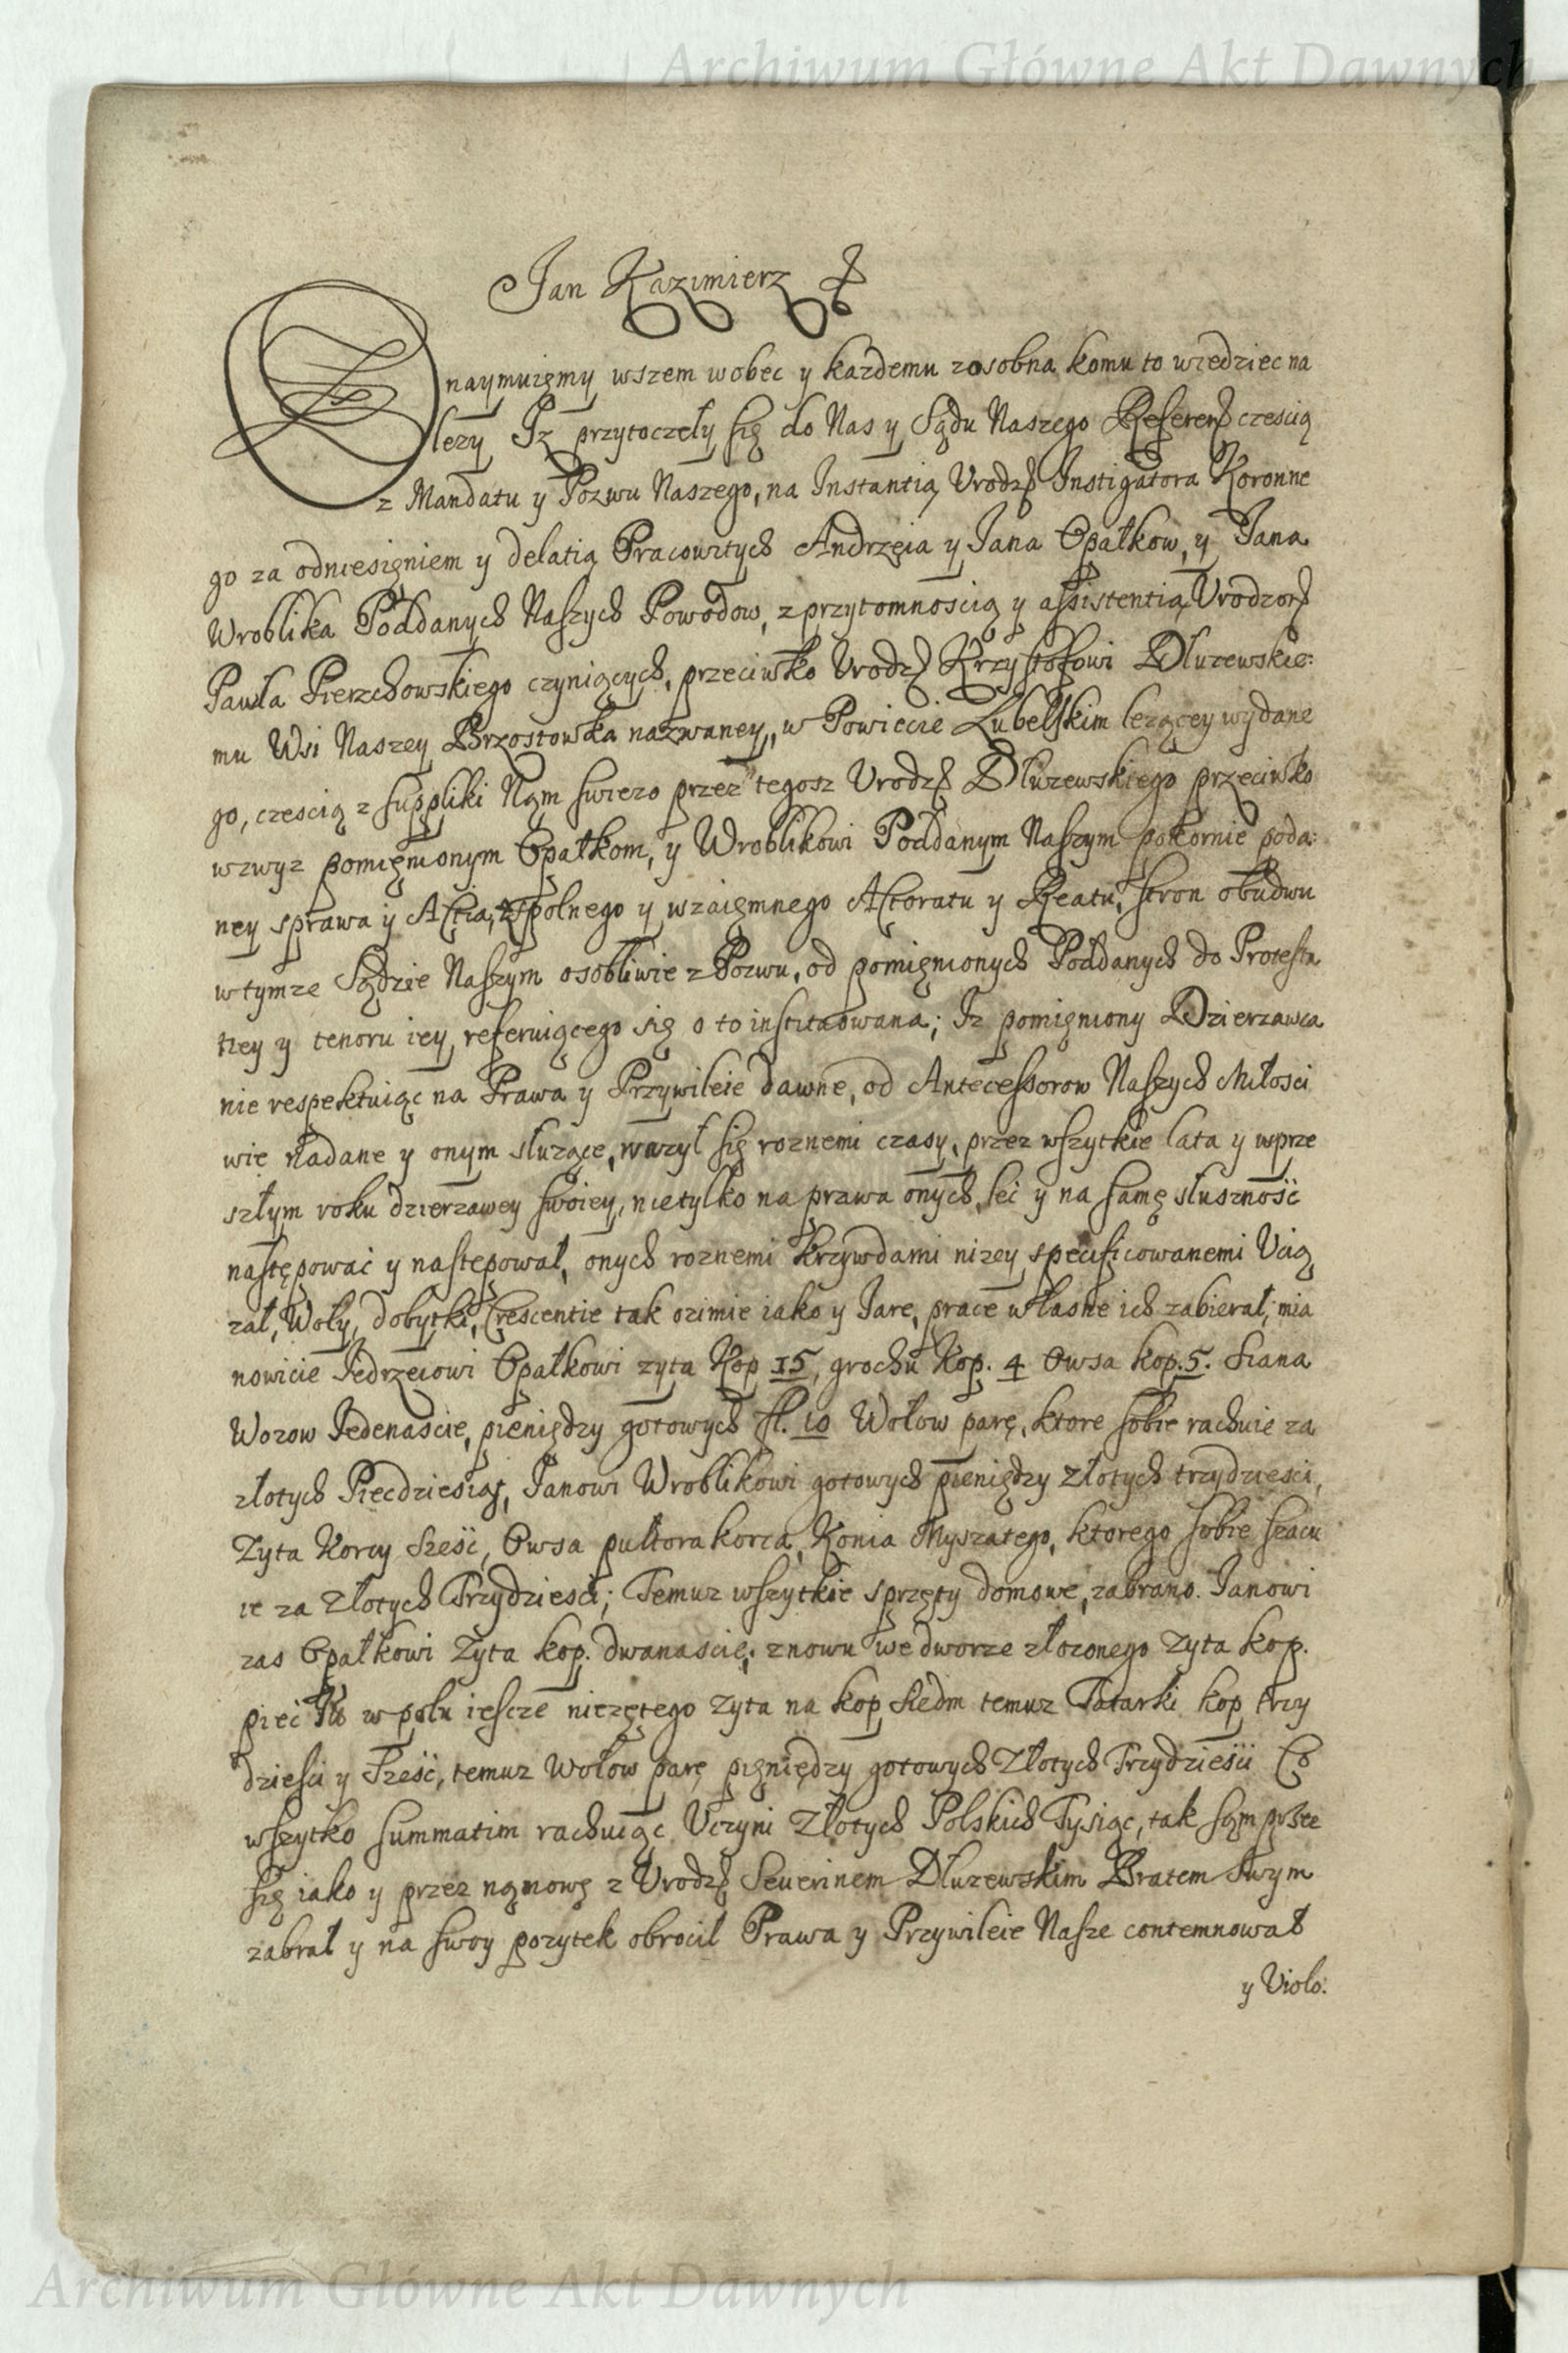 Archiwum Główne Akt Dawnych
Jan Kazimierz
Oznaymuięmy wszem wobec y kazdemu zosobna komu to wiedziec na
lezy Iz przytoczeły się do Nas y Sądu Naszego Referen czescią
z Mandatu y Pozwu Naszego, na Instantią Urodz Instigatora Koronne
go za odniesięniem y delatią Pracowitych Andrzeia y Jana Opałkow, y Jana
Wroblika Poddanych Naszych Powodow, z przytomnoscią y assistentią Urodzon
Pawła Pierzchowskiego czyniących, przeciwko Urodz Krzysztofowi Dluzewskie:
mu Wsi Naszey Brzostowka nazwaney, w Powiecie Lubelskim lezącey wydane
go, czescią z suppliki Nąm swiezo przez tegosz Urodz Dluzewskiego przeciwko
wzwyz pomięnionym Opałkom, y Wroblikowi Poddanym Naszym pokornie poda:
ney sprawa y Actia, wspolnego y wzaięmnego Actoratu y Reatu, stron obudwu
w tymze Sądzie Naszym osobliwie z Pozwu, od pomięnionych Poddanych do Protesta
tiey y tenoru iey referuiącego się o to instituowana; Iz pomięniony Dzierzawca
nie respektuiąc na Prawa y Przywileie dawne, od Antecessorow Naszych Miłosci
wie nadane y onym sluzące, wazyl się roznemi czasy, przez wszytkie lata y wprze
szłym roku dzierzawey swoiey, nietylko na prawa onych, leć y na samę slusznosć
następować y nastepował, onych roznemi krzywdami nizey specificowanemi Ucią
zał, Woły, dobytki, Crescentie tak ozimie iako y Jare, prace własne ich zabierał, mia
nowicie Jedrzeiowi Opałkowi zyta Kop 15, grochu Kop. 4 Owsa kop. 5. Siana
Wozow Jedenascie, pieniędzy gotowych fl. 10 Wołow parę, ktore sobie rachuie za
złotych Piecdziesiąt, Janowi Wroblikowi gotowych pieniędzy złotych trzydziesci,
Zyta Korcy Szesć, Owsa pułtora korca, Konia Myszatego, ktorego sobie szacu
ie za złotych Trzydziesci; Temuz wszytkie sprzęty domowe, zabrano. Janowi
zas Opałkowi Zyta kop. dwanascie, znowu we dworze złozonego Zyta kop.
pieć w polu iescze niezętego Zyta na kop Siedm temuz Tatarki kop trzy
dziesci y Szesć, temuz Wołow parę pięniędzy gotowych Złotych Trzydziesci Co
wszytko summatim rachuiąc Uczyni Złotych Polskich Tysiąc, tak sąm przez
się iako y przez nąmowę z Urodz Severinem Dluzewskim Bratem Swym
zabrał y na swoy pozytek obrocil Prawa y Przywileie Nasze contemnował
y Violo:
Archiwum Główne Akt Dawnych